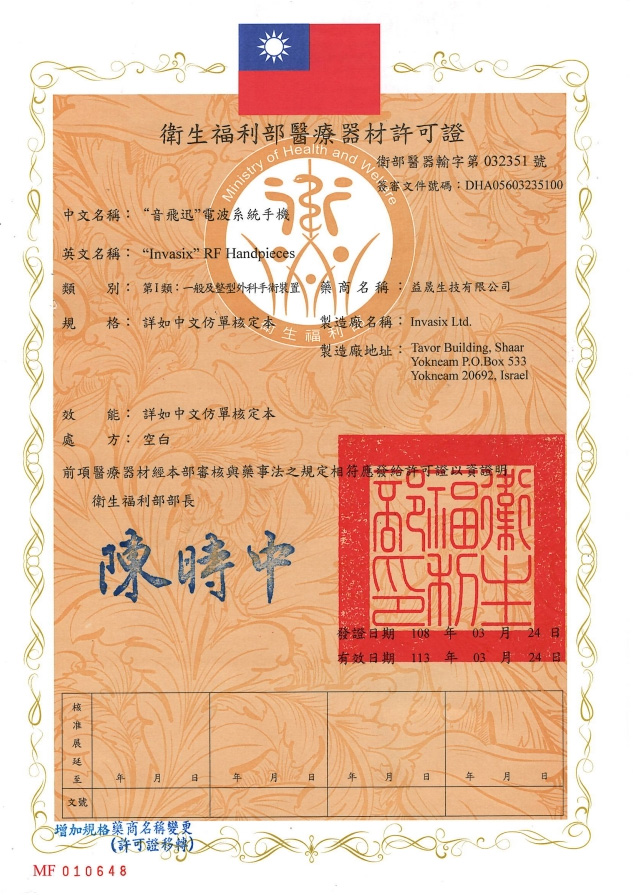 衛生福利部醫療器材許可證
Ministry of Health and Welfare
衛部醫器輸字第 032351 號
簽審文件號碼：DHA05603235100
中文名稱：“音飛迅”電波系統手機
英文名稱：“Invasix” RF Handpieces
類 別：第I類：一般及整型外科手術裝置 藥商名稱：益晟生技有限公司
規 格：詳如中文仿單核定本 製造廠名稱：Invasix Ltd.
衛生福利
製造廠地址：Tavor Building, Shaar
Yokneam P.O.Box 533
Yokneam 20692, Israel
效 能：詳如中文仿單核定本
處 方：空白
前項醫療器材經本部審核與藥事法之規定相符應發給許可證以資證明
衛生福利部部長
陳時中
衛生福利部印
發證日期 108 年 03 月 24 日
有效日期 113 年 03 月 24 日
核准展延至 年 月 日 年 月 日 年 月 日 年 月 日
文號
增加規格藥商名稱變更
(許可證移轉)
MF 010648